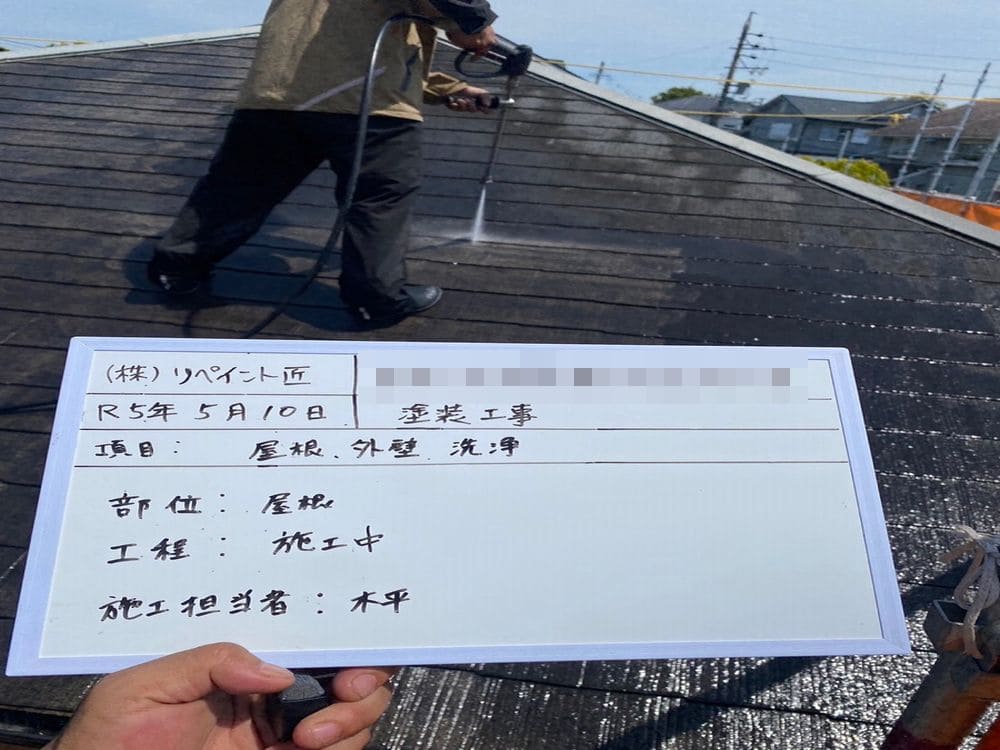 (株)リペイント匠
R5年5月10日
塗装工事
項目: 屋根、外壁 洗浄
部位: 屋根
工程: 施工中
施工担当者: 木平